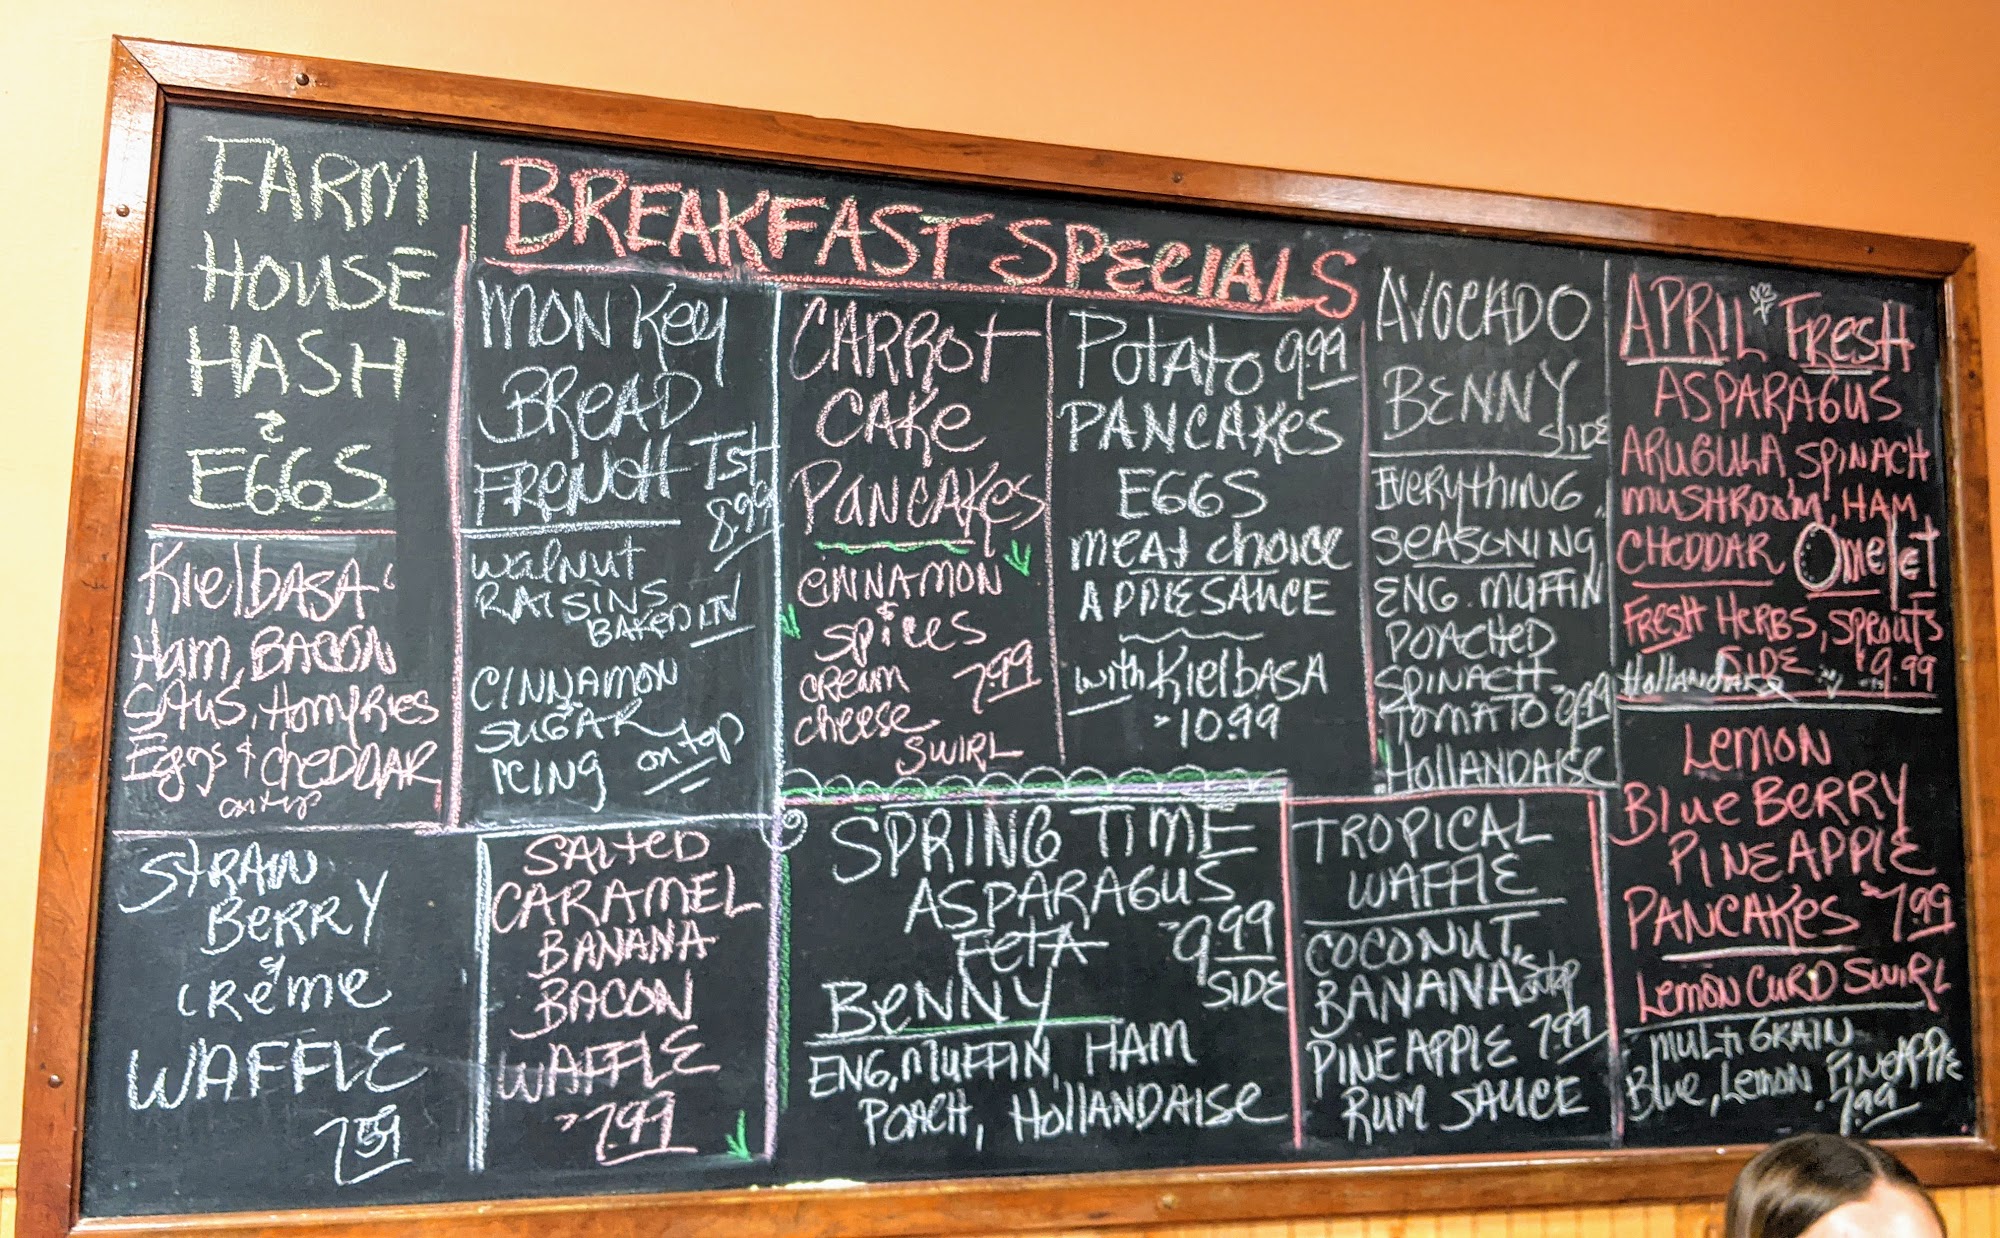 FARM
HOUSE
HASH
&
EGGS
Kielbasa
Ham, BACON
Home FRIES
Eggs & CHEDDAR
on top
BREAKFAST SPECIALS
MONKey
BREAD
FRENCH TST
8.99
walnut
RAISINS
BAKED IN
CINNAMON
SUGAR
ICING on top
CARROT
CAKE
PANCAKES
CINNAMON
&
SPICES
CREAM 7.99
cheese
SWIRL
Potato 9.99
PANCAKES
EGGS
MEAT CHOICE
APPLESAUCE
with KIELBASA
10.99
AVOCADO
BENNY
SIDE
EVERYTHING
SEASONING
ENG. MUFFIN
POACHED
SPINACH
TOMATO 9.99
HOLLANDAISE
APRIL FRESH
ASPARAGUS
ARUGULA SPINACH
MUSHROOM, HAM
CHEDDAR OMELET
FRESH HERBS, SPROUTS
SIDE 9.99
LEMON
BLUEBERRY
PINEAPPLE
PANCAKES 7.99
LEMON CURD SWIRL
MULTI GRAIN
Blue, Lemon, PINEAPPLE
7.99
STRAW
BERRY
&
CRème
WAFFLE
7.59
SALTED
CARAMEL
BANANA
BACON
WAFFLE
7.99
SPRING TIME
ASPARAGUS
FETA 9.99
BENNY SIDE
ENG, MUFFIN, HAM
POACH, HOLLANDAISE
TROPICAL
WAFFLE
COCONUT,
BANANA on top
PINEAPPLE 7.99
RUM SAUCE